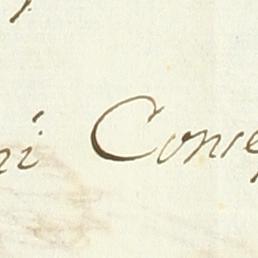 ni Conce